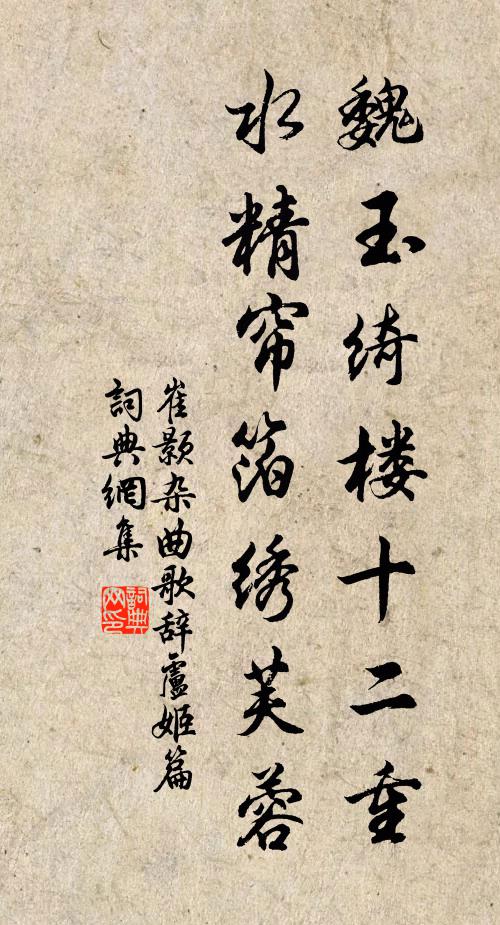 魏玉绮楼十二重
水精帘箔绣芙蓉
崔颢杂曲歌辞盧姬篇
詞典網集
詞典網印